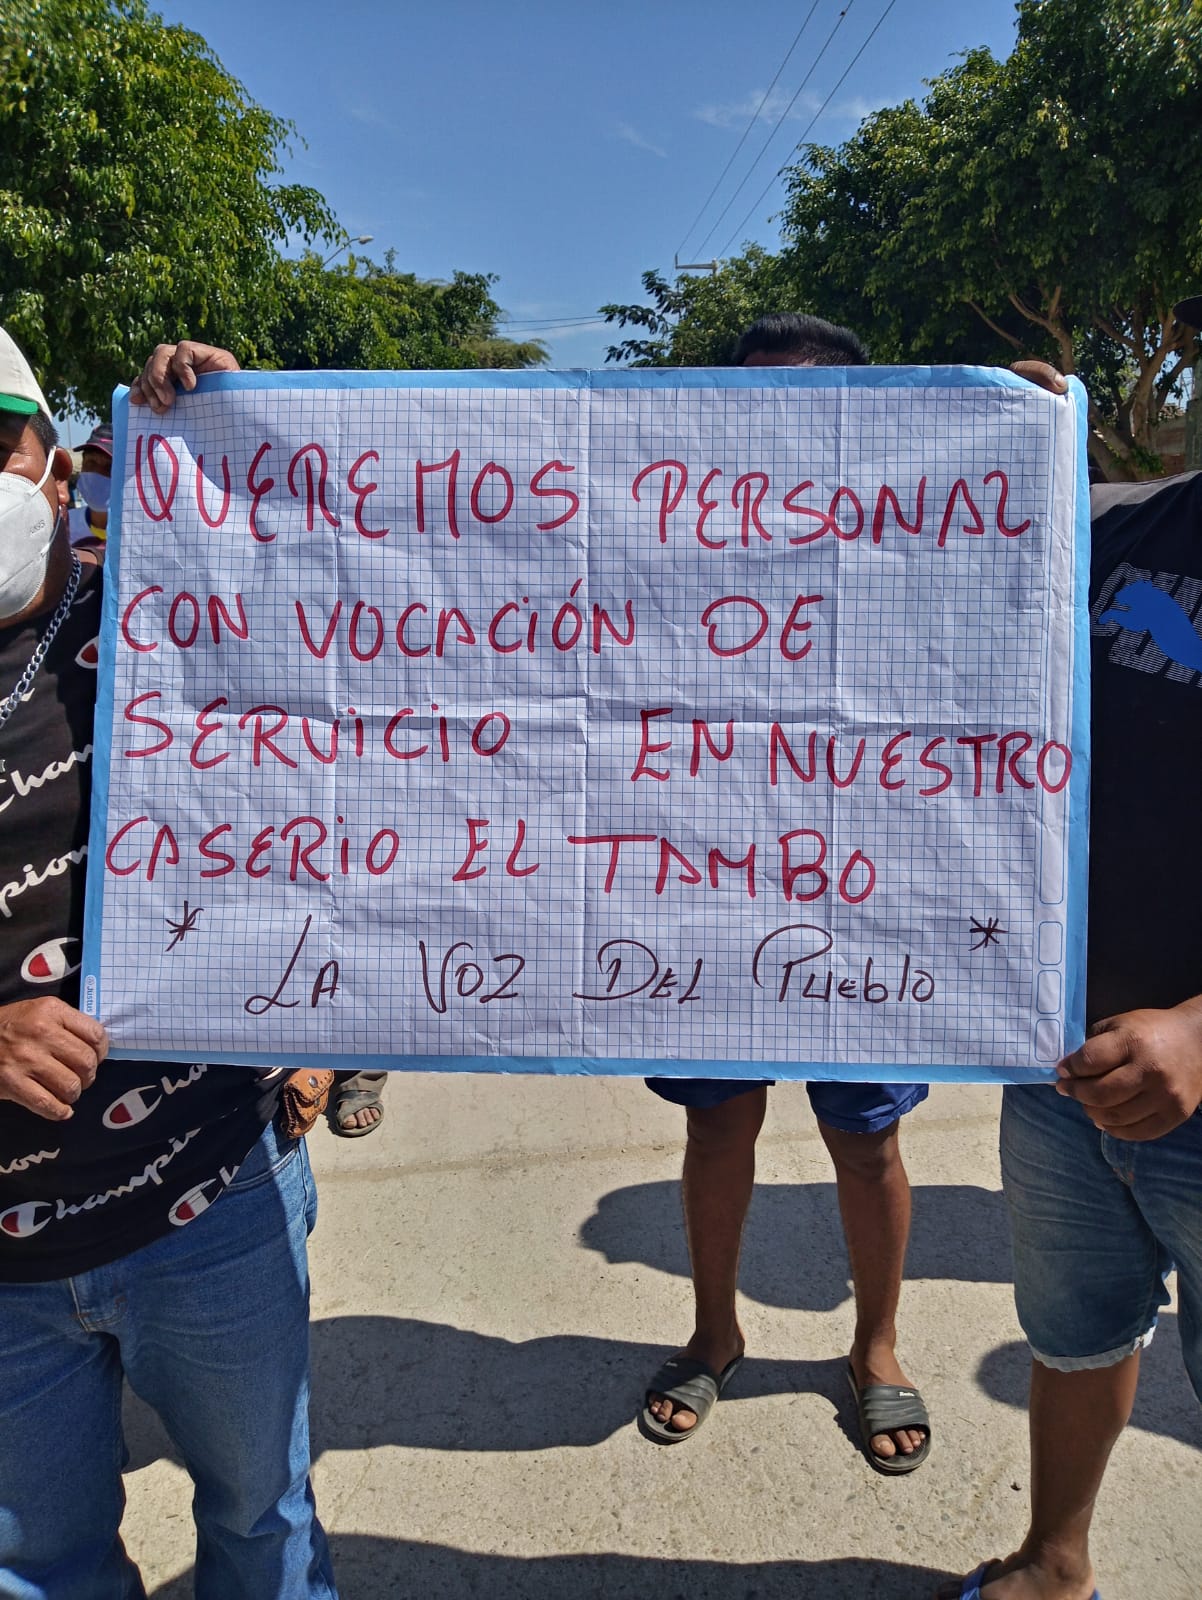 QUEREMOS PERSONAL
CON VOCACIÓN DE
SERVICIO EN NUESTRO
CASERIO EL TAMBO
* LA VOZ DEL PUEBLO *
Justus
Champion
Champion